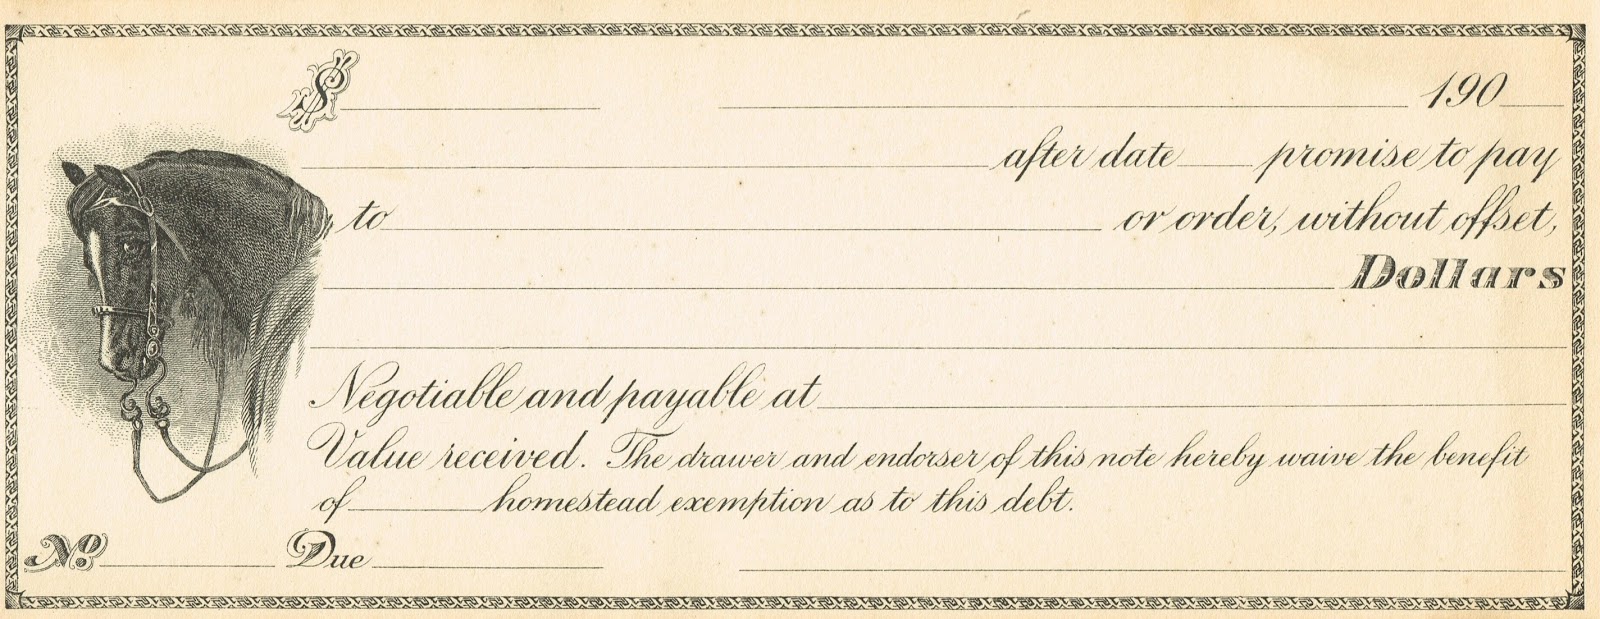 $ 190
after date promise to pay
to or order, without offset,
Dollars
Negotiable and payable at
Value received. The drawer and endorser of this note hereby waive the benefit
of homestead exemption as to this debt.
No. Due